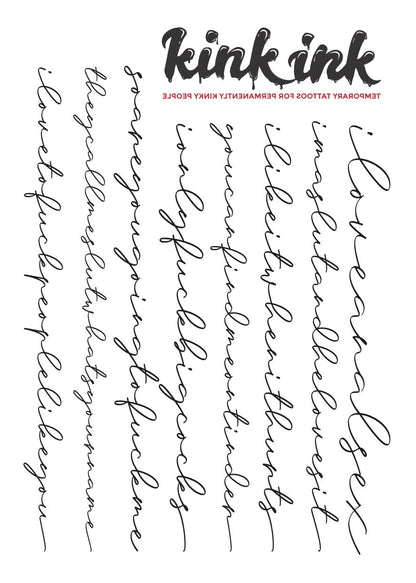 kink ink
TEMPORARY TATTOOS FOR PERMANENTLY KINKY PEOPLE
iloveanalsex
imaslutandhelovesit
ilikeitwhenithurts
youcanfindmeontinder
ionlyfuckbigcocks
soareyougoingtofuckme
theycallmeslutwhatsyourname
ilovetofuckpeoplelikeyou